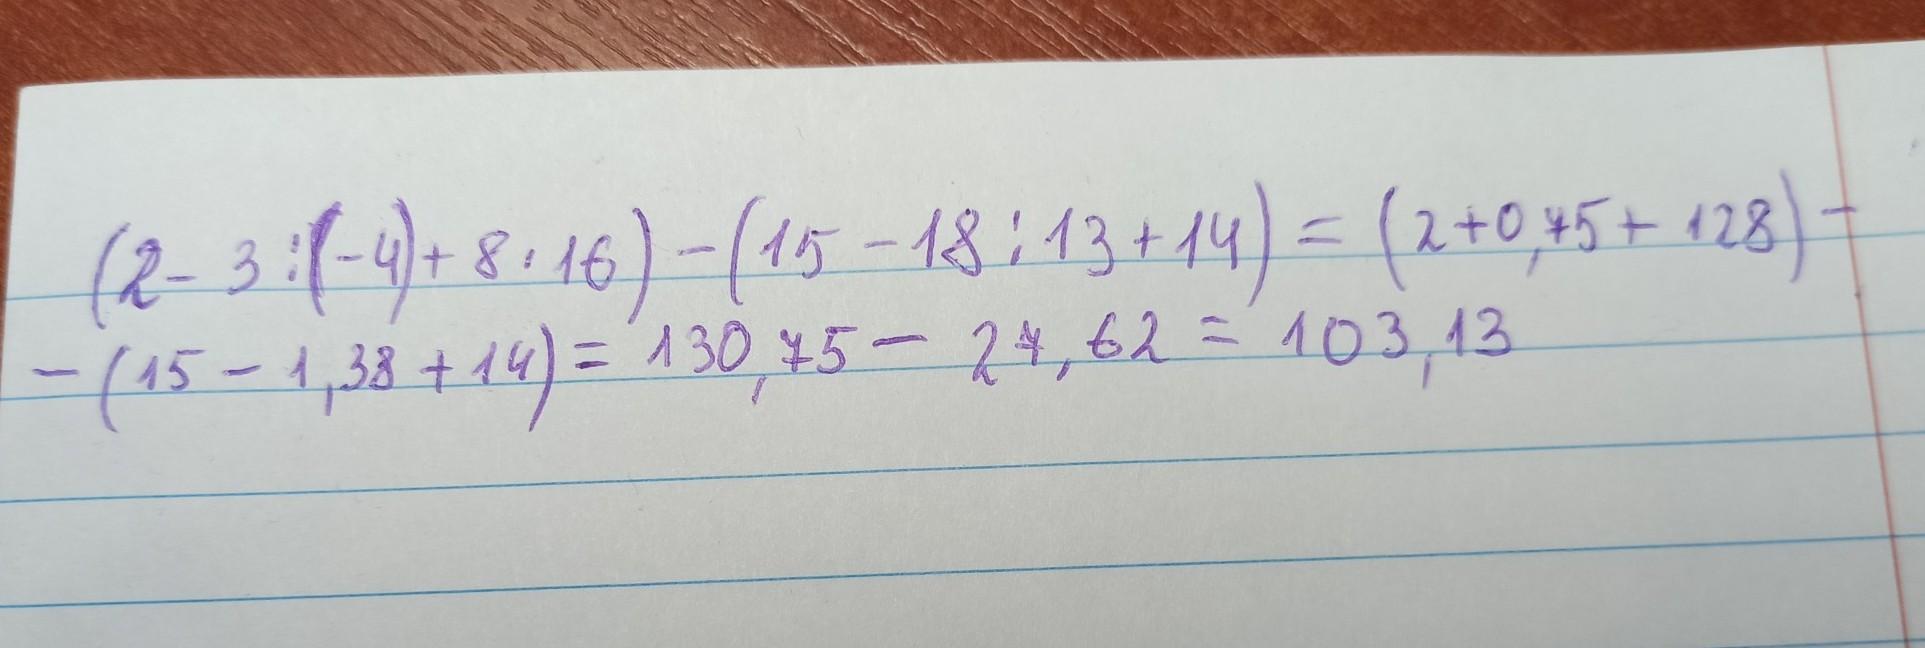 (2 - 3 : (-4) + 8 · 16) - (15 - 18 : 13 + 14) = (2 + 0,75 + 128) -
- (15 - 1,38 + 14) = 130,75 - 27,62 = 103,13